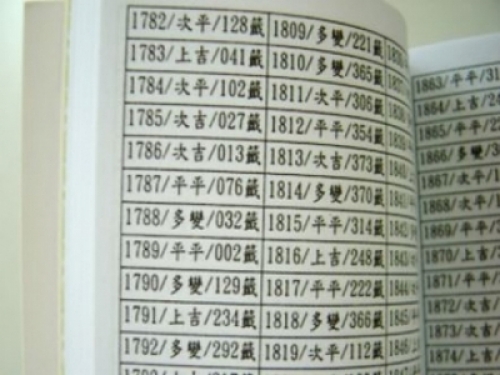 1782/次平/128籤
1783/上吉/041籤
1784/次平/102籤
1785/次吉/027籤
1786/次吉/013籤
1787/平平/076籤
1788/多變/032籤
1789/平平/002籤
1790/多變/129籤
1791/上吉/234籤
1792/多變/292籤
1809/多變/221籤
1810/多變/365籤
1811/次平/306籤
1812/平平/354籤
1813/次吉/373籤
1814/多變/370籤
1815/平平/314籤
1816/上吉/248籤
1817/平平/222籤
1818/多變/366籤
1819/次平/112籤
1840/
1842/
1843/
1844/
1845/
1846/
1863/平平/31
1864/上吉/
1865/平平/
1866/多變/3
1867/次平/
1868/次平/
1869/平平/
1870/上吉/
1871/平平/
1872/次吉/
1873/次吉/
1874/次吉/